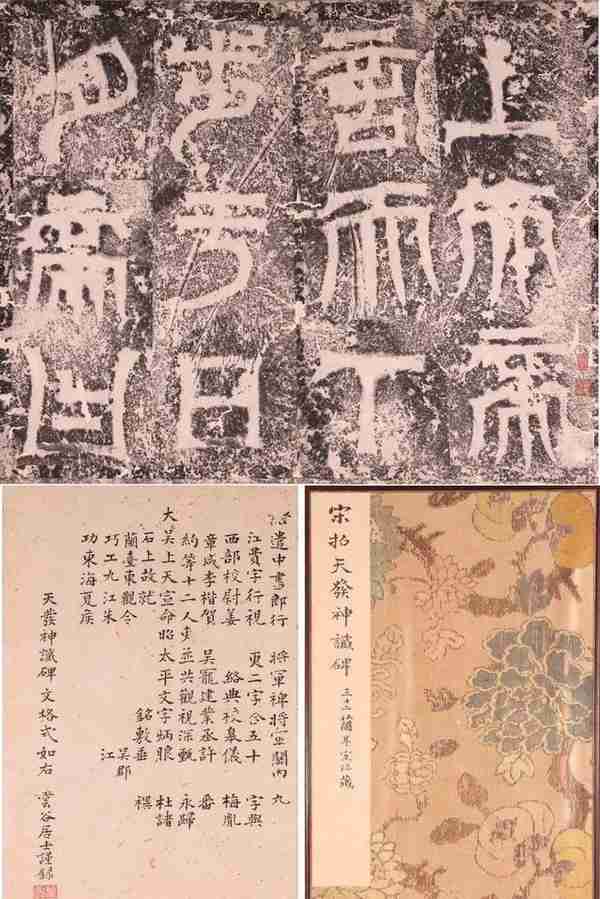 上天帝
言天下
步于日
月帝曰
詔遣中書郎行 將軍裨將軍關內 九
江費字行視 更二字合五十 字與
西部校尉姜 絡典校皋儀 梅胤
章咸李楷賀 吳寵建業丞許 番
約等十二人吏並共觀視深甄 永歸
大吳上天宣命昭太平文字炳朖 杜諸
石上故就 銘敷垂 禩
蘭臺東觀令 吳郡
巧工九江朱 江
功東海夏侯
天發神讖碑文格式如右 雲谷居士謹錄
宋拓天發神讖碑 三十二蘭亭室珍藏